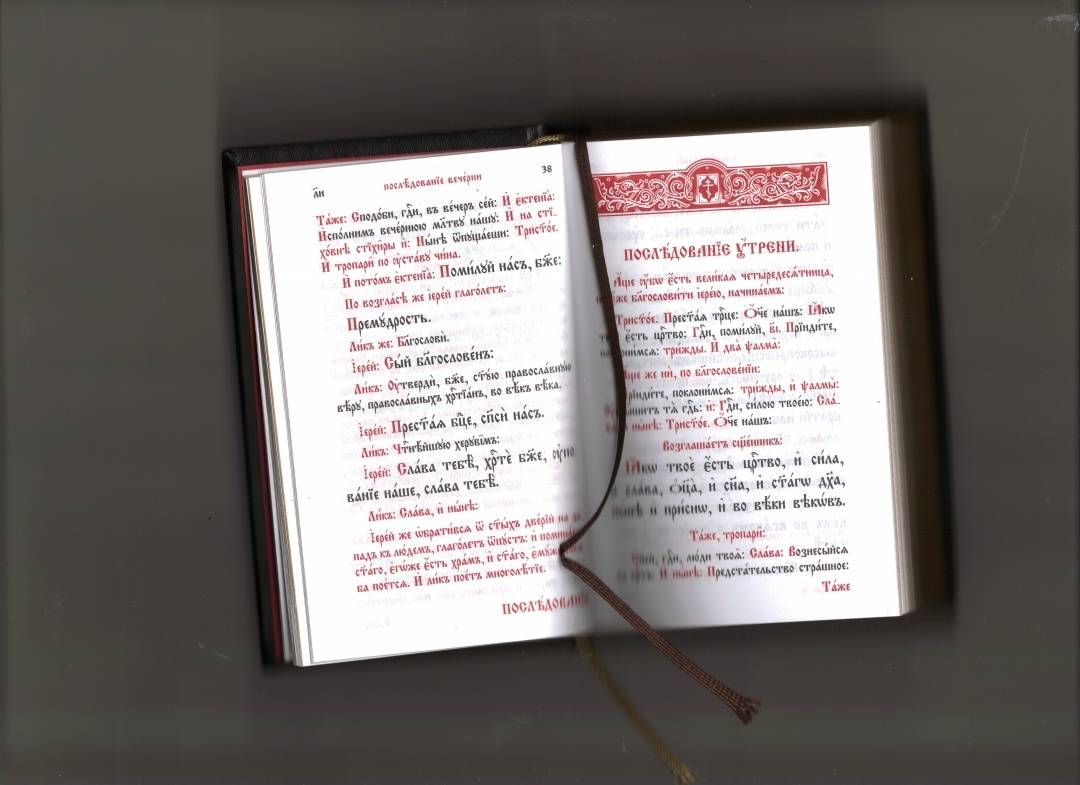 л҃и
послѣ́дованїе вече́рни
38
Та́же: Сподо́би, гдⷭ҇и, въ ве́черъ се́й: И҆ є҆ктенїа̀:
И҆спо́лнимъ вече́рнюю мл҃тву на́шу: И҆ на стї-
хо́внѣ стїхи̑ры и҆: Ны́нѣ ѿпꙋща́еши: Трист҃о́е.
И҆ тропари̑ по ᲂу҆ста́вꙋ чи́на.
И҆ пото́мъ є҆ктенїа̀: Поми́лꙋй на́съ, бж҃е:
По во́згласѣ же і҆ере́й глаго́летъ:
Премꙋ́дрость.
Ли́къ же: Блгⷭ҇овѝ.
І҆ере́й: Сы́й блгⷭ҇ове́нъ:
Ли́къ: Оу҆твердѝ, бж҃е, ст҃ꙋ́ю правосла́внꙋю
вѣ́рꙋ, правосла́вныхъ хрⷭ҇тїа́нъ, во вѣ́къ вѣ́ка.
І҆ере́й: Прест҃а́ѧ бцⷣе, сп҃сѝ на́съ.
Ли́къ: Чтⷭ҇нѣ́йшꙋю херꙋві̑мъ:
І҆ере́й: Сла́ва тебѣ̀, хрⷭ҇тѐ бж҃е, ᲂу҆по-
ва́нїе на́ше, сла́ва тебѣ̀.
Ли́къ: Сла́ва, и҆ ны́нѣ:
І҆ере́й же ѡ҆брати́всѧ ѿ ст҃ы́хъ двере́й на за-
падъ къ лю́демъ, глаго́летъ ѿпꙋ́стъ: и҆ помина́
ст҃а́го, є҆гѡ́же є҆́сть хра́мъ, и҆ ст҃а́го, є҆мꙋ́же
ба пое́тсѧ. И҆ ли́къ пое́тъ многолѣ́тїе.
ПОСЛѢ́ДОВАНІЕ
ПОСЛѢ́ДОВАНЇЕ Ѹ҆́ТРЕНИ.
А҆́ще ᲂу҆́бѡ є҆́сть вели́каѧ четыредесѧ́тница,
же блгⷭ҇ови́ти і҆ере́ю, начина́емъ:
Трист҃о́е. Прест҃а́ѧ трⷪ҇це: Ѻ҆́ч҃е на́шъ: Ꙗ҆́кѡ
є҆́сть црⷭ҇тво: Гдⷭ҇и, поми́лꙋй, в҃і. Прїиди́те,
поклони́мсѧ: три́жды. И҆ два̀ ѱалма̑:
А҆́ще же нѝ, по блгⷭ҇ове́нїи:
Прїиди́те, поклони́мсѧ: три́жды, и҆ ѱалмы̀:
тѧ̀ гдⷭ҇ь: и҆: Гдⷭ҇и, си́лою твое́ю: Сла́-
ва, и҆ ны́нѣ: Трист҃о́е. Ѻ҆́ч҃е на́шъ:
Возглаша́етъ сщ҃е́нникъ:
Ꙗ҆́кѡ твоѐ є҆́сть црⷭ҇тво, и҆ си́ла,
и҆ сла́ва, ѻ҆ц҃а̀, и҆ сн҃а, и҆ ст҃а́гѡ дх҃а,
ны́нѣ и҆ при́снѡ, и҆ во вѣ́ки вѣкѡ́въ.
Та́же, тропарѝ:
гдⷭ҇и, лю́ди твоѧ̑: Сла́ва: Вознесы́йсѧ
И҆ ны́нѣ: Предста́тельство стра́шное:
Та́же